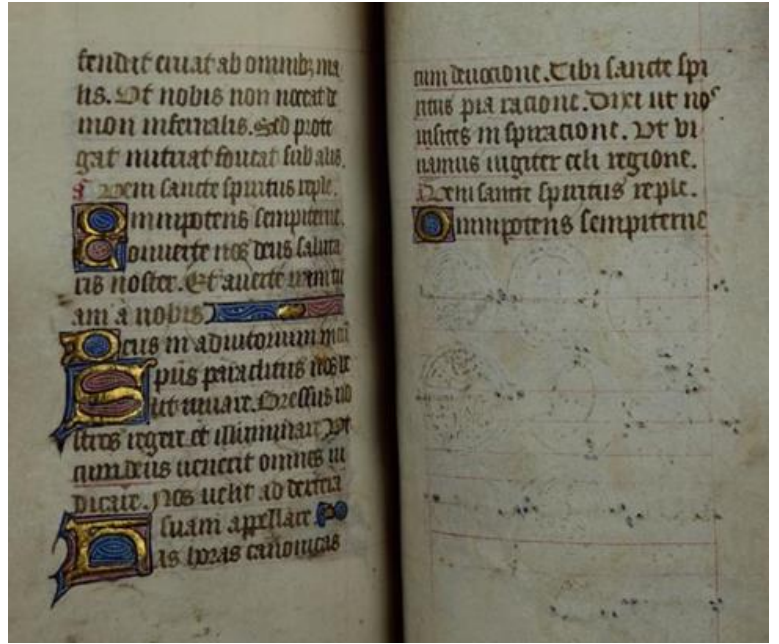 fendat cuiat ab omnibꝫ ma
lis. Ut nobis non noceat de
mon infernalis. Sed prote
gat nutriat foueat sub alis.
Veni sancte spiritus reple.
Omnipotens sempiterne.
Conuerte nos deus saluta
ris noster. Et auerte iram tu
am a nobis
Deus in adiutorium meū
Spūs paraclitus nos ve
lit iuuare. Gressus no
stros regere et illuminare Ut
cum deus uenerit omnes iu
dicare. Nos uelit ad dextera
suam appellare.
Has horas canonicas
cum deuocione. Tibi sancte spi
ritus pia racione. Dixi ut nos
uisites in spiracione. Ut vi
uamus iugiter celi regione.
Veni sancte spiritus reple.
Omnipotens sempiterne